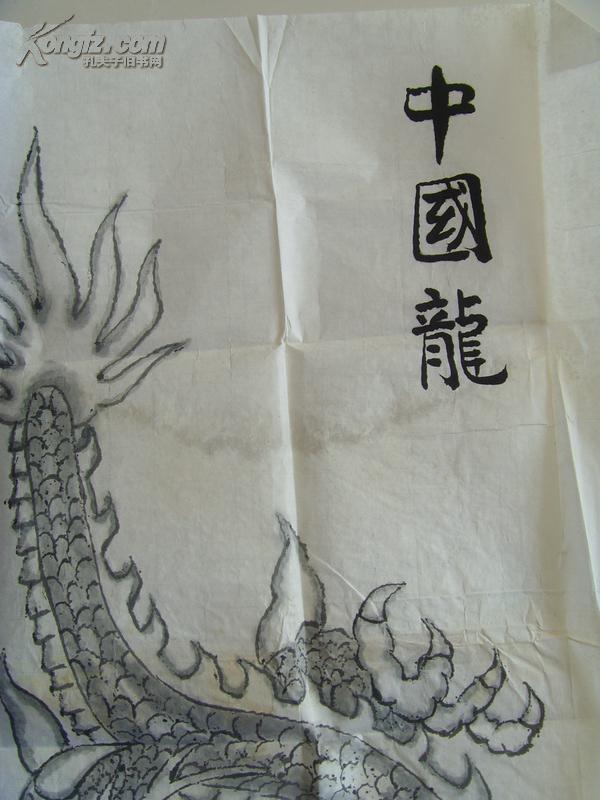 Kongfz.com
孔夫子旧书网
中國龍